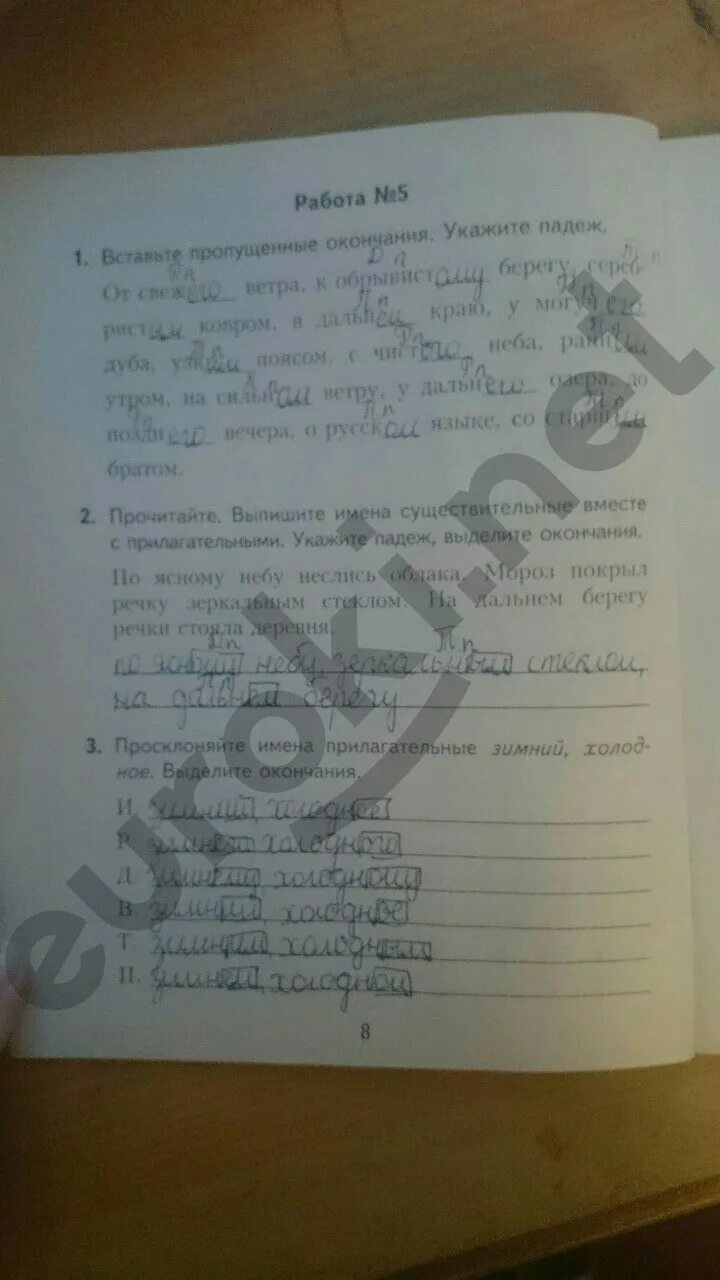 Работа №5
1. Вставьте пропущенные окончания. Укажите падеж.
Д п
От свежего ветра, к обрывистому берегу, сереб-
П п
ристым ковром, в дальнем краю, у могуч его
дуба, узким поясом, с чистого неба, ранним
утром, на сильном ветру, у дальнего озера, до
П п
позднего вечера, о русском языке, со старшим
братом.
2. Прочитайте. Выпишите имена существительные вместе
с прилагательными. Укажите падеж, выделите окончания.
По ясному небу неслись облака. Мороз покрыл
речку зеркальным стеклом. На дальнем берегу
речки стояла деревня.
Д п Т п
по ясному небу, зеркальным стеклом,
на дальнем берегу
3. Просклоняйте имена прилагательные зимний, холод-
ное. Выделите окончания.
И. зимний, холодное
Р. зимнего холодного
Д. зимнему, холодному
В. зимний, холодное
Т. зимним, холодным
П. зимнем, холодном
8
euroki.net